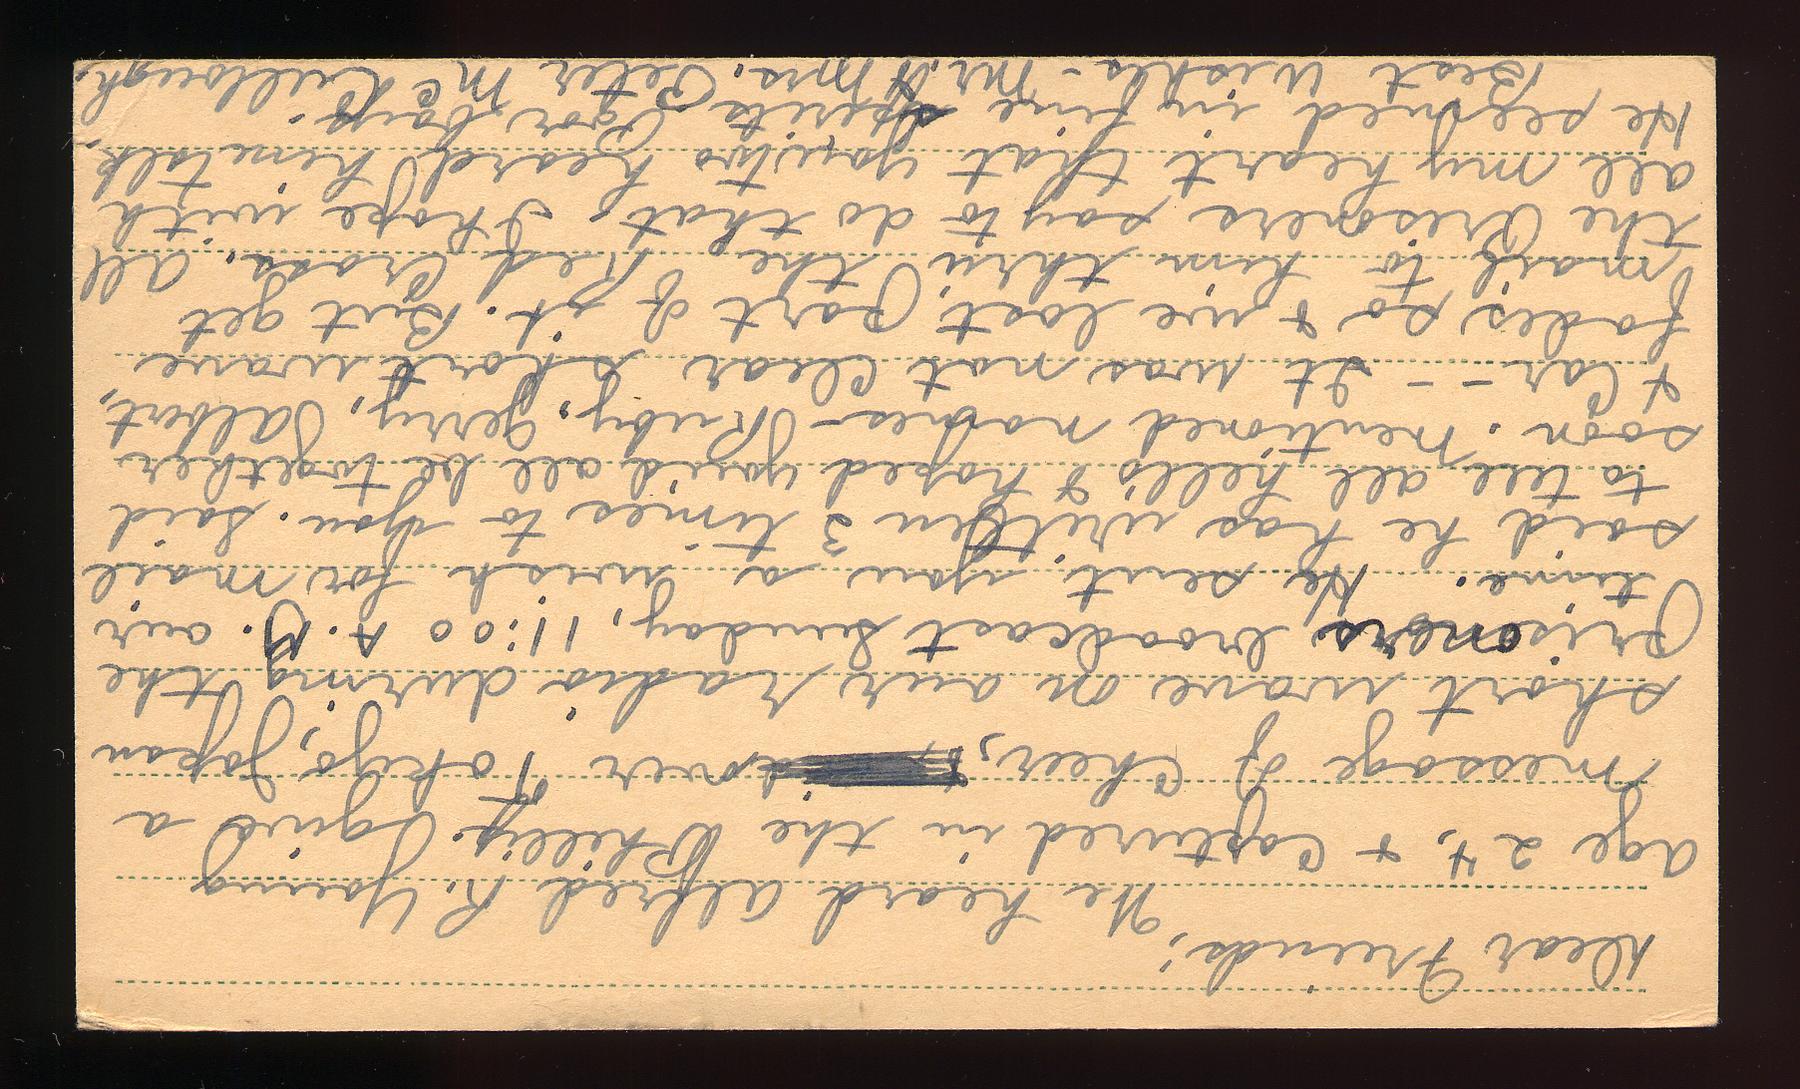 Dear Friends;
We heard Alfred R. Young
age 24, & captured in the Philip. Igive a
message of cheer, over Tokyo, Japan
short wave on our radio during the
prisoners broadcast Sunday, 11:00 A.M. our
time. He sent you a wish for mail
said he has written 3 times to you. Said
to tell all hello & hoped you'd all be together
soon. Mentioned names - Ruby, Jerry, Talbort,
& Car -- It was not clear short wave
fades so & we lost part of it. But get
mail to him thru the Red Cross. all
the Prisoners say to do that. I hope with
all my heart that you two heard him talk.
He seemed in fine spirits Poor boys.
Best Wishes - Mr. & Mrs. Peter McCullough.